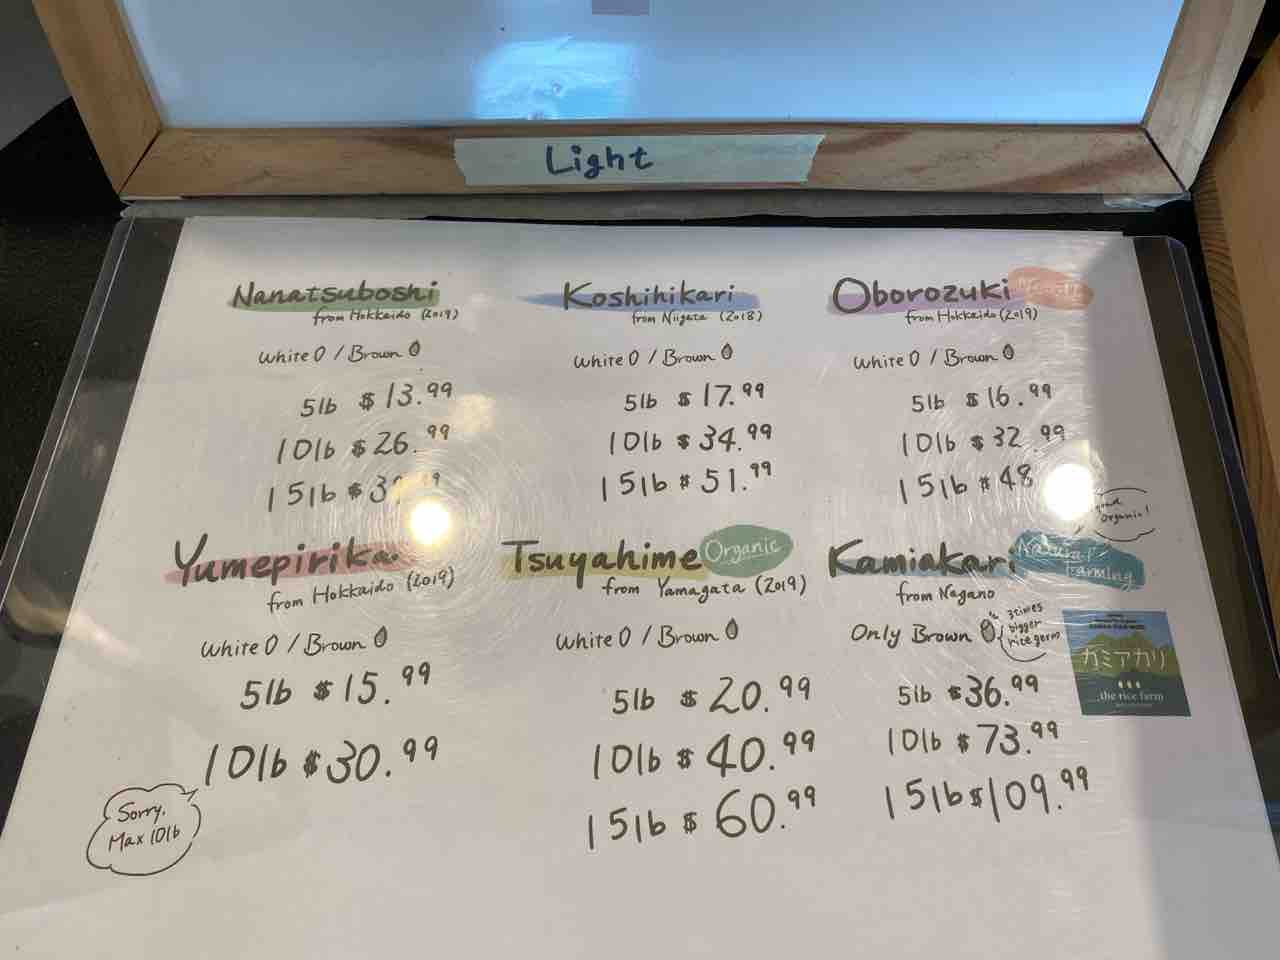 Light
Nanatsuboshi
from Hokkaido (2019)
White / Brown
5lb $13.99
10lb $26.99
15lb
Koshihikari
from Niigata (2018)
White / Brown
5lb $17.99
10lb $34.99
15lb $51.99
Oborozuki
from Hokkaido (2019)
White / Brown
5lb $16.99
10lb $32.99
15lb $48
Yumepirika
from Hokkaido (2019)
White / Brown
5lb $15.99
10lb $30.99
Sorry.
Max 10lb
Tsuyahime Organic
from Yamagata (2019)
White / Brown
5lb $20.99
10lb $40.99
15lb $60.99
Organic!
Kamiakari Natural
Farming
from Nagano
Only Brown
3 times
bigger
rice germ
5lb $36.99
10lb $73.99
15lb $109.99
カミアカリ
the rice farm